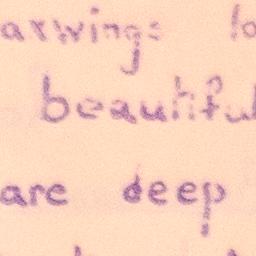 arwings lo
beautiful
are deep